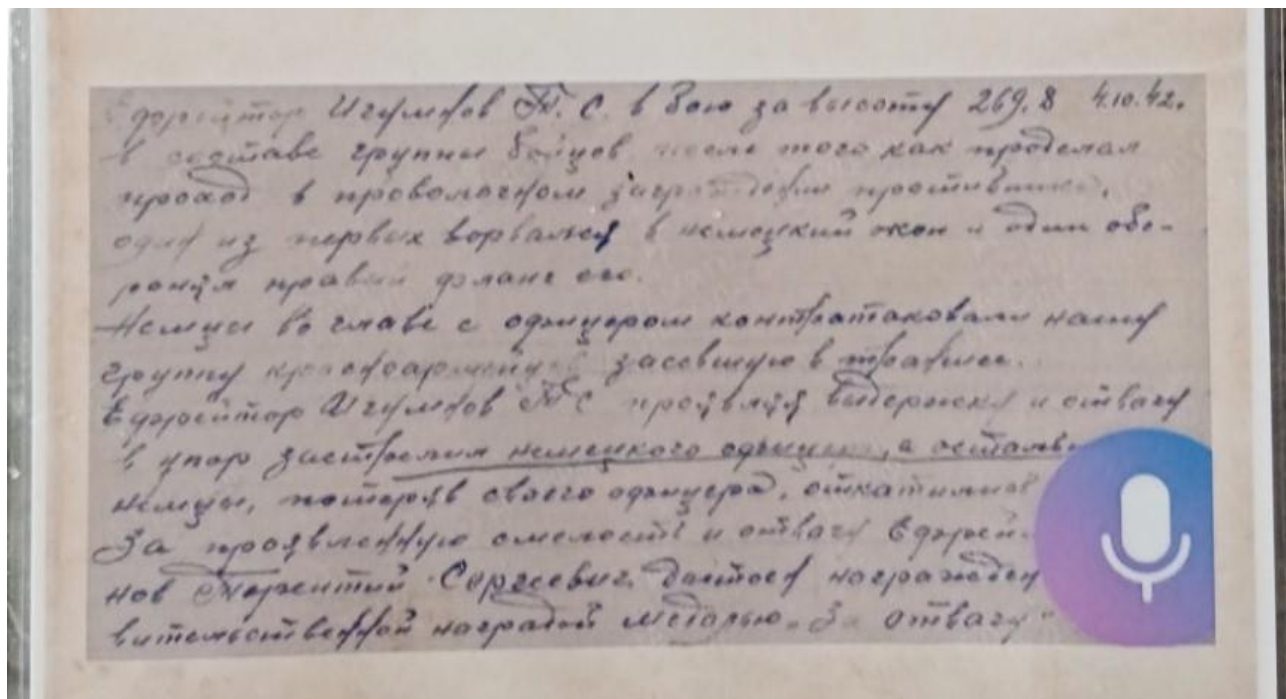 Ефрейтор Игумнов Т. С. в бою за высоту 269.8 4.10.42.
в составе группы бойцов после того как проделал
проход в проволочном заграждении противника,
один из первых ворвался в немецкий окоп и один обо-
ронял правый фланг его.
Немцы во главе с офицером контратаковали нашу
группу красноармейцев засевшую в траншее.
Ефрейтор Игумнов Т С проявляя выдержку и отвагу
в упор застрелил немецкого офицера, а
немцы, потеряв своего офицера, откатились
За проявленную смелость и отвагу
нов Сергеевич достоен
наградой медалью "За отвагу"